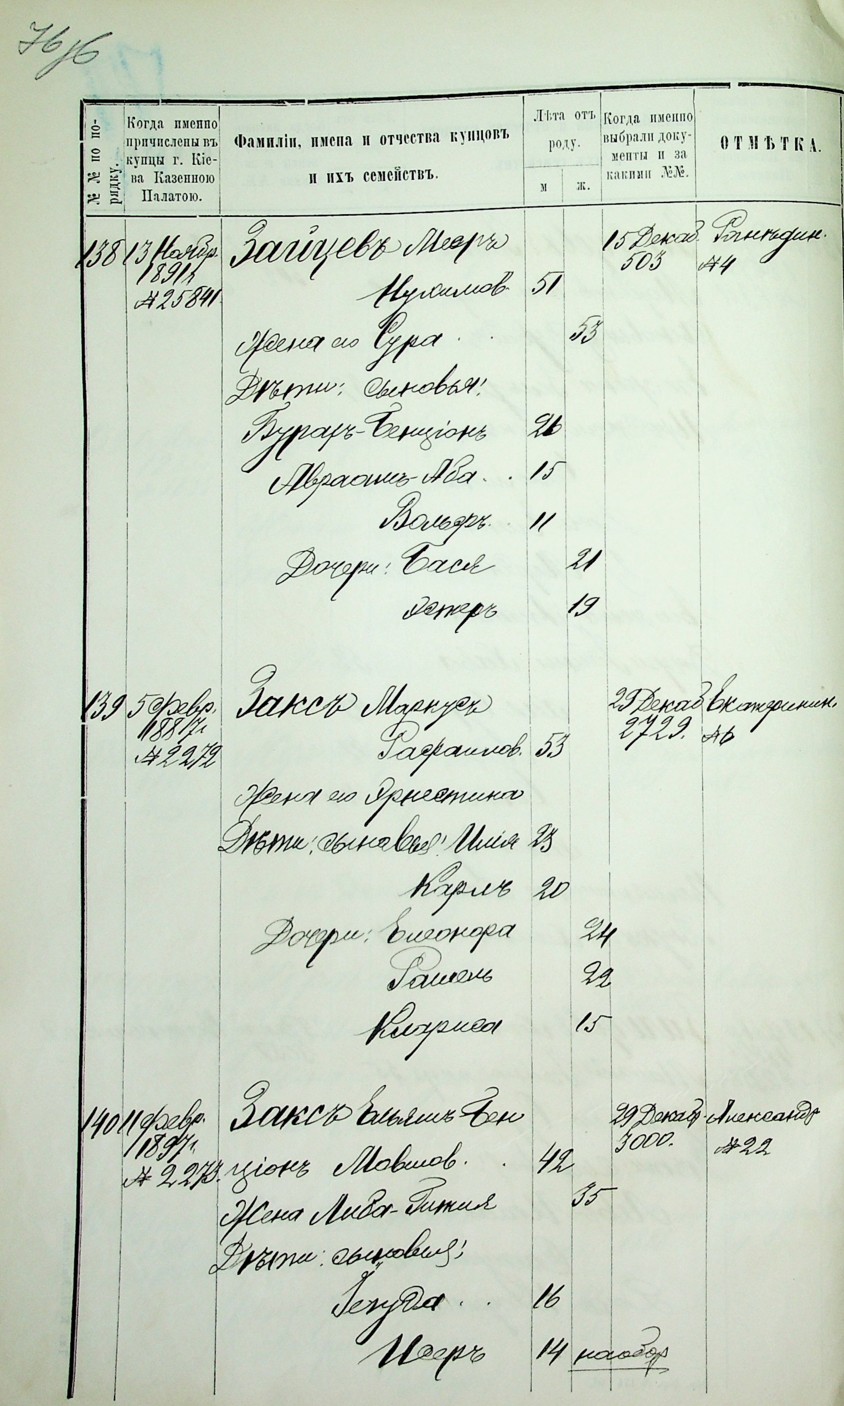 76
№№ по порядку.
Когда именно причислены въ купцы г. Кіева Казенною Палатою.
Фамиліи, имена и отчества купцовъ и ихъ семействъ.
Лѣта отъ роду.
м
ж.
Когда именно выбрали документы и за какими №№.
ОТМѢТКА.
138 13 Ноябр. Зайцевъ Мееръ 15 Декаб.
503 № 4
№ 25841 Нухимов. 51
Жена его Сура 53
Дѣти: сыновья:
Бенціонъ 26
Авраамъ-Аба 15
Вольфъ 11
Дочери: Бася 21
Эстеръ 19
139 5 февр. Заксъ Маркусъ 25 Декаб Екатеринин.
2729. № 6
№ 2272 Рафаилов. 53
Жена его Эрнестина
Дѣти: сыновья: Илія 23
Карлъ 20
Дочери: Елеонора 24
Рашель 22
Клариса 15
140 11 февр. Заксъ Ельяшъ Бен 29 Декаб. Александр
1897г. 3000. № 22
№ 2273. ціонъ Мовшов. 42
Жена Либа-Гитля 35
Дѣти: сыновья:
Іегуда 16
Исеръ 14 наобор